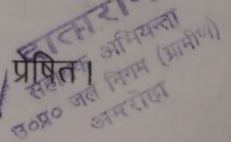 प्रेषित।
सहायक अभियन्ता
उ०प्र० जल निगम (ग्रामीण)
अमरोहा